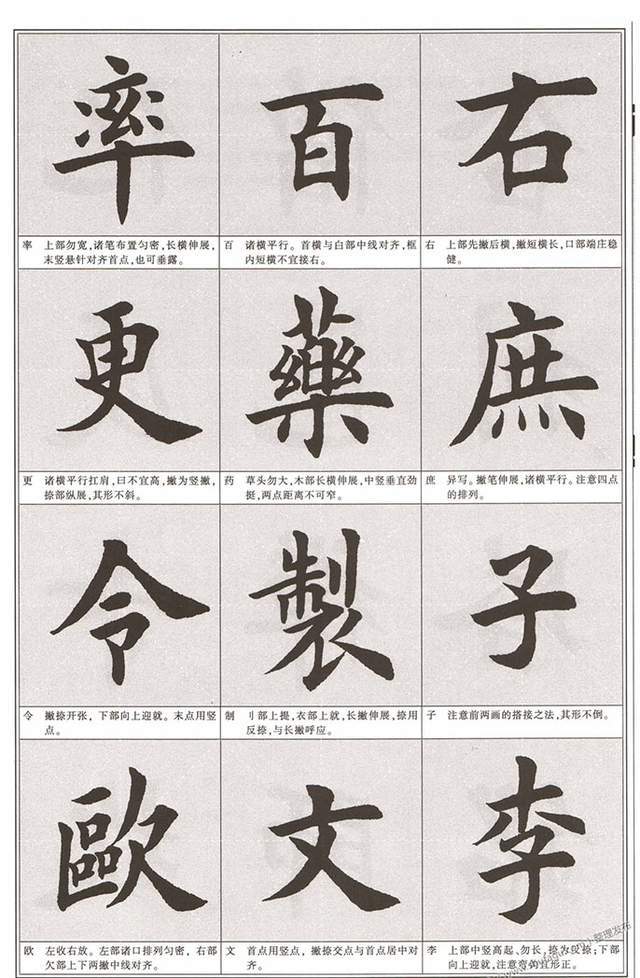 率 百 右
率 上部勿宽，诸笔布置匀密，长横伸展，
末竖悬针对齐首点，也可垂露。
百 诸横平行。首横与白部中线对齐，框
内短横不宜接右。
右 上部先撇后横，撇短横长，口部端庄稳
健。
更 藥 庶
更 诸横平行扛肩，曰不宜高，撇为竖撇，
捺部纵展，其形不斜。
药 草头勿大，木部长横伸展，中竖垂直劲
挺，两点距离不可窄。
庶 异写。撇笔伸展，诸横平行。注意四点
的排列。
令 製 子
令 撇捺开张，下部向上迎就。末点用竖
点。
制 刂部上提，衣部上就，长撇伸展，捺用
反捺，与长撇呼应。
子 注意前两画的搭接之法，其形不倒。
歐 文 李
欧 左收右放。左部诸口排列匀密，右部
欠部上下两撇中线对齐。
文 首点用竖点，撇捺交点与首点居中对
齐。
李 上部中竖高起，勿长，捺为反捺；下部
向上迎就，注意弯钩宜形正。
整理发布